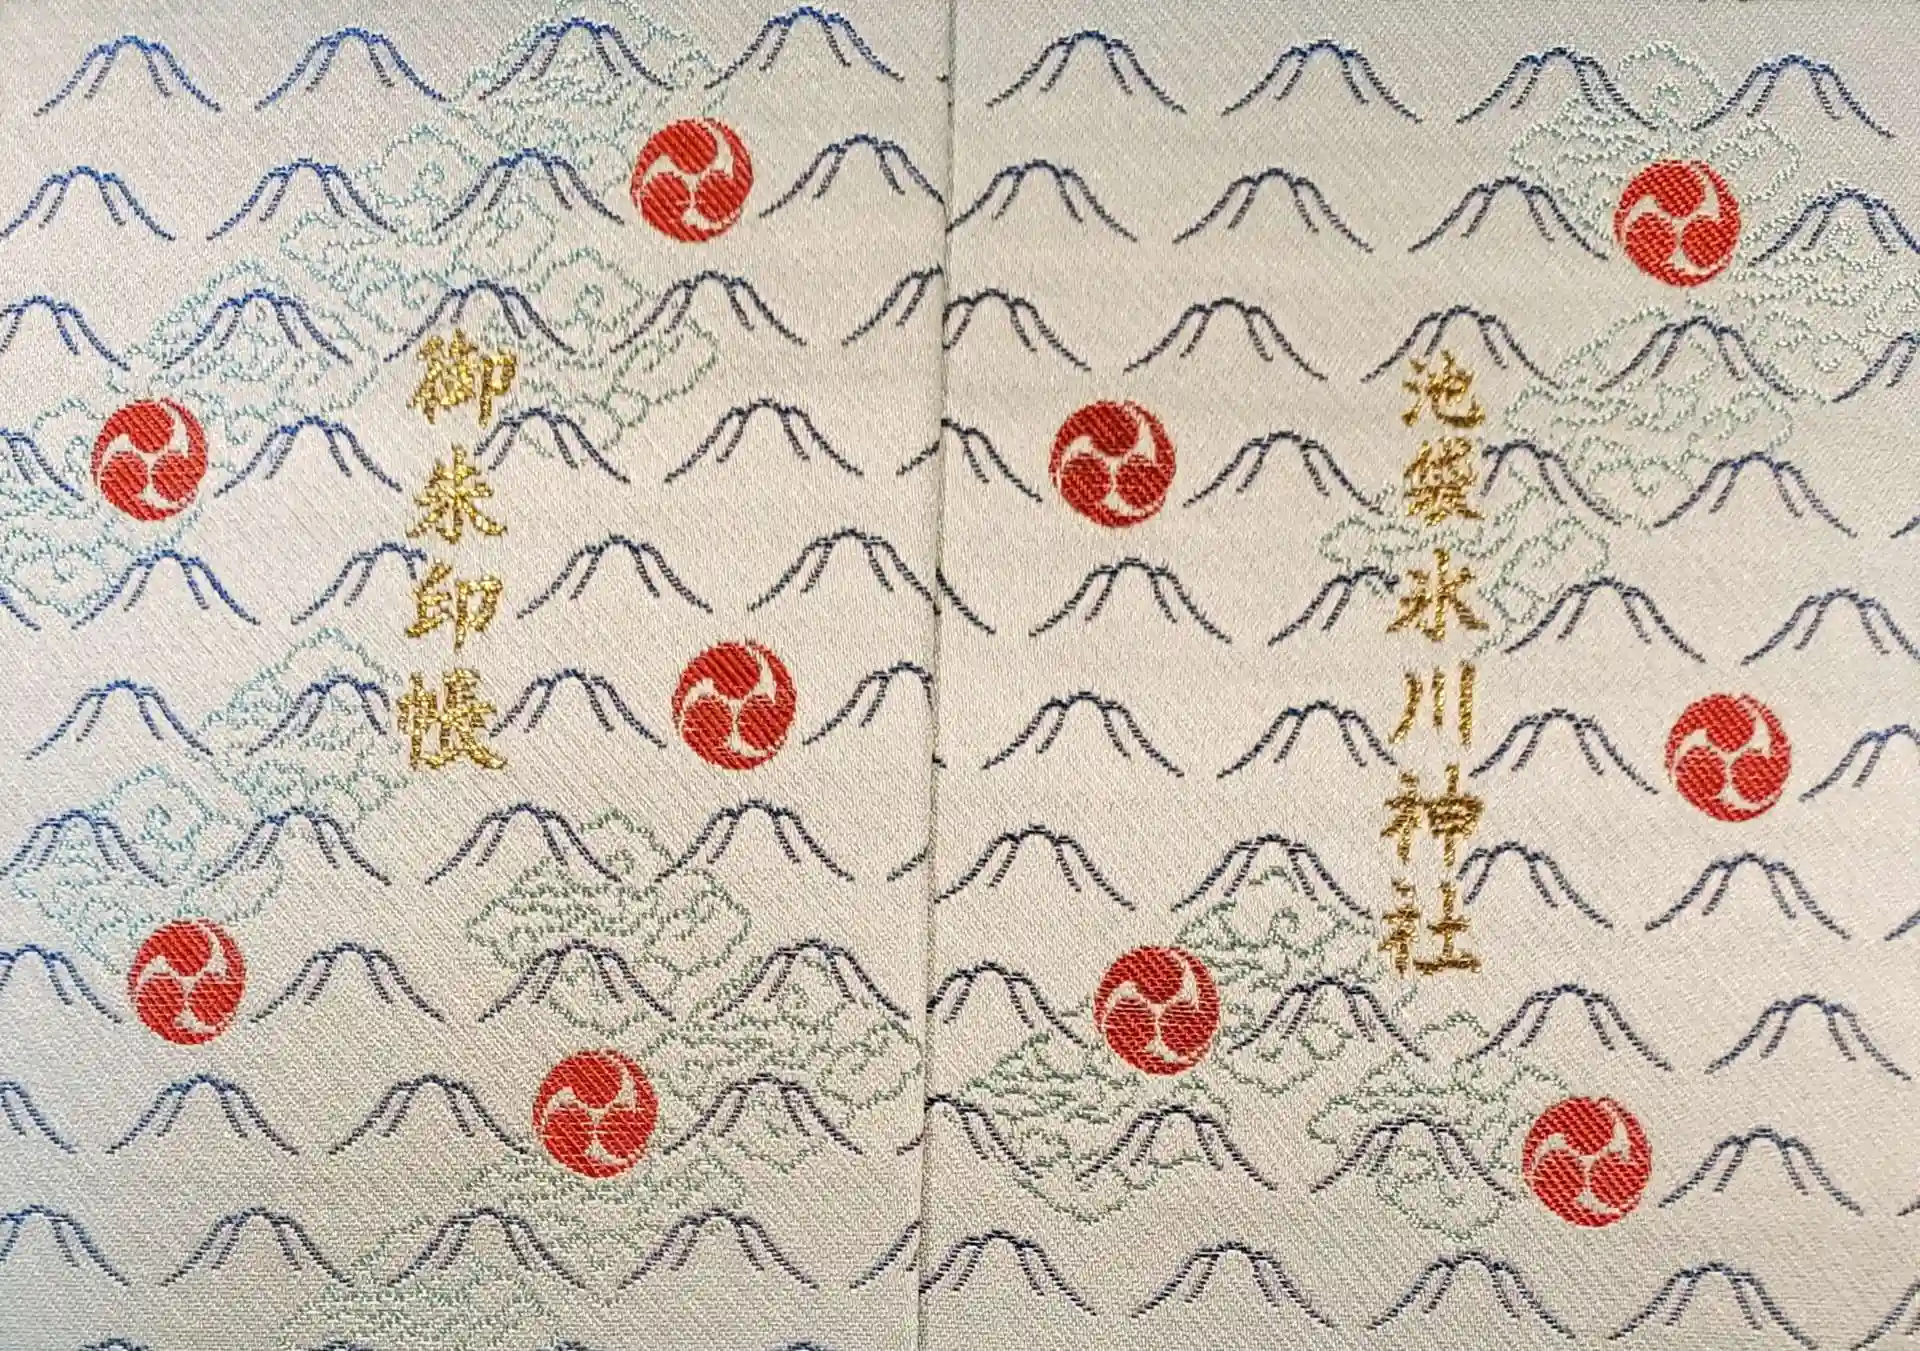 御朱印帳
池袋氷川神社